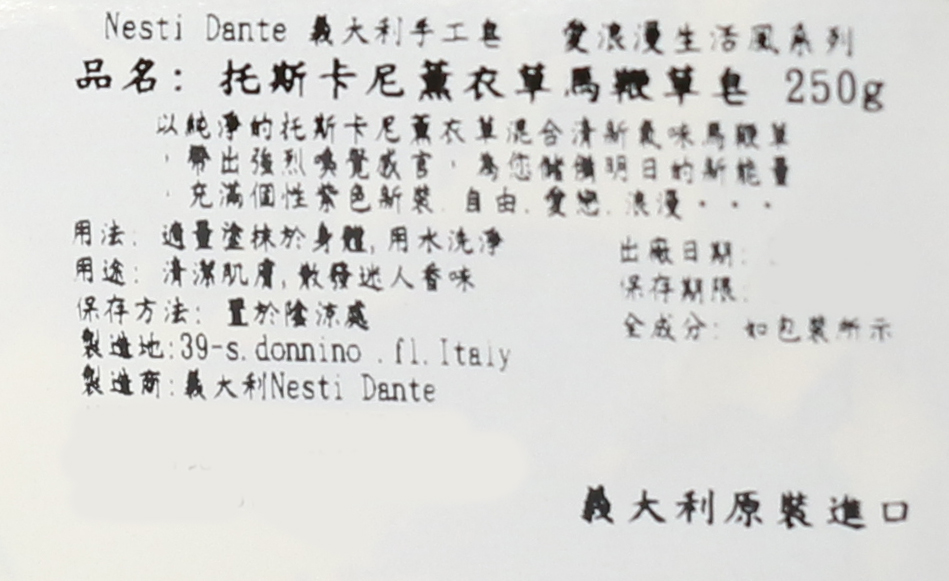 Nesti Dante 義大利手工皂 愛浪漫生活風系列
品名: 托斯卡尼薰衣草馬鞭草皂 250g
以純淨的托斯卡尼薰衣草混合清新氣味馬鞭草
，帶出強烈嗅覺感官，為您儲備明日的新能量
，充滿個性紫色新裝.自由.愛戀.浪漫・・・
用法: 適量塗抹於身體,用水洗淨
用途: 清潔肌膚,散發迷人香味
保存方法: 置於陰涼處
製造地:39-s.donnino .fl.Italy
製造商:義大利Nesti Dante
出廠日期:
保存期限:
全成分: 如包裝所示
義大利原裝進口